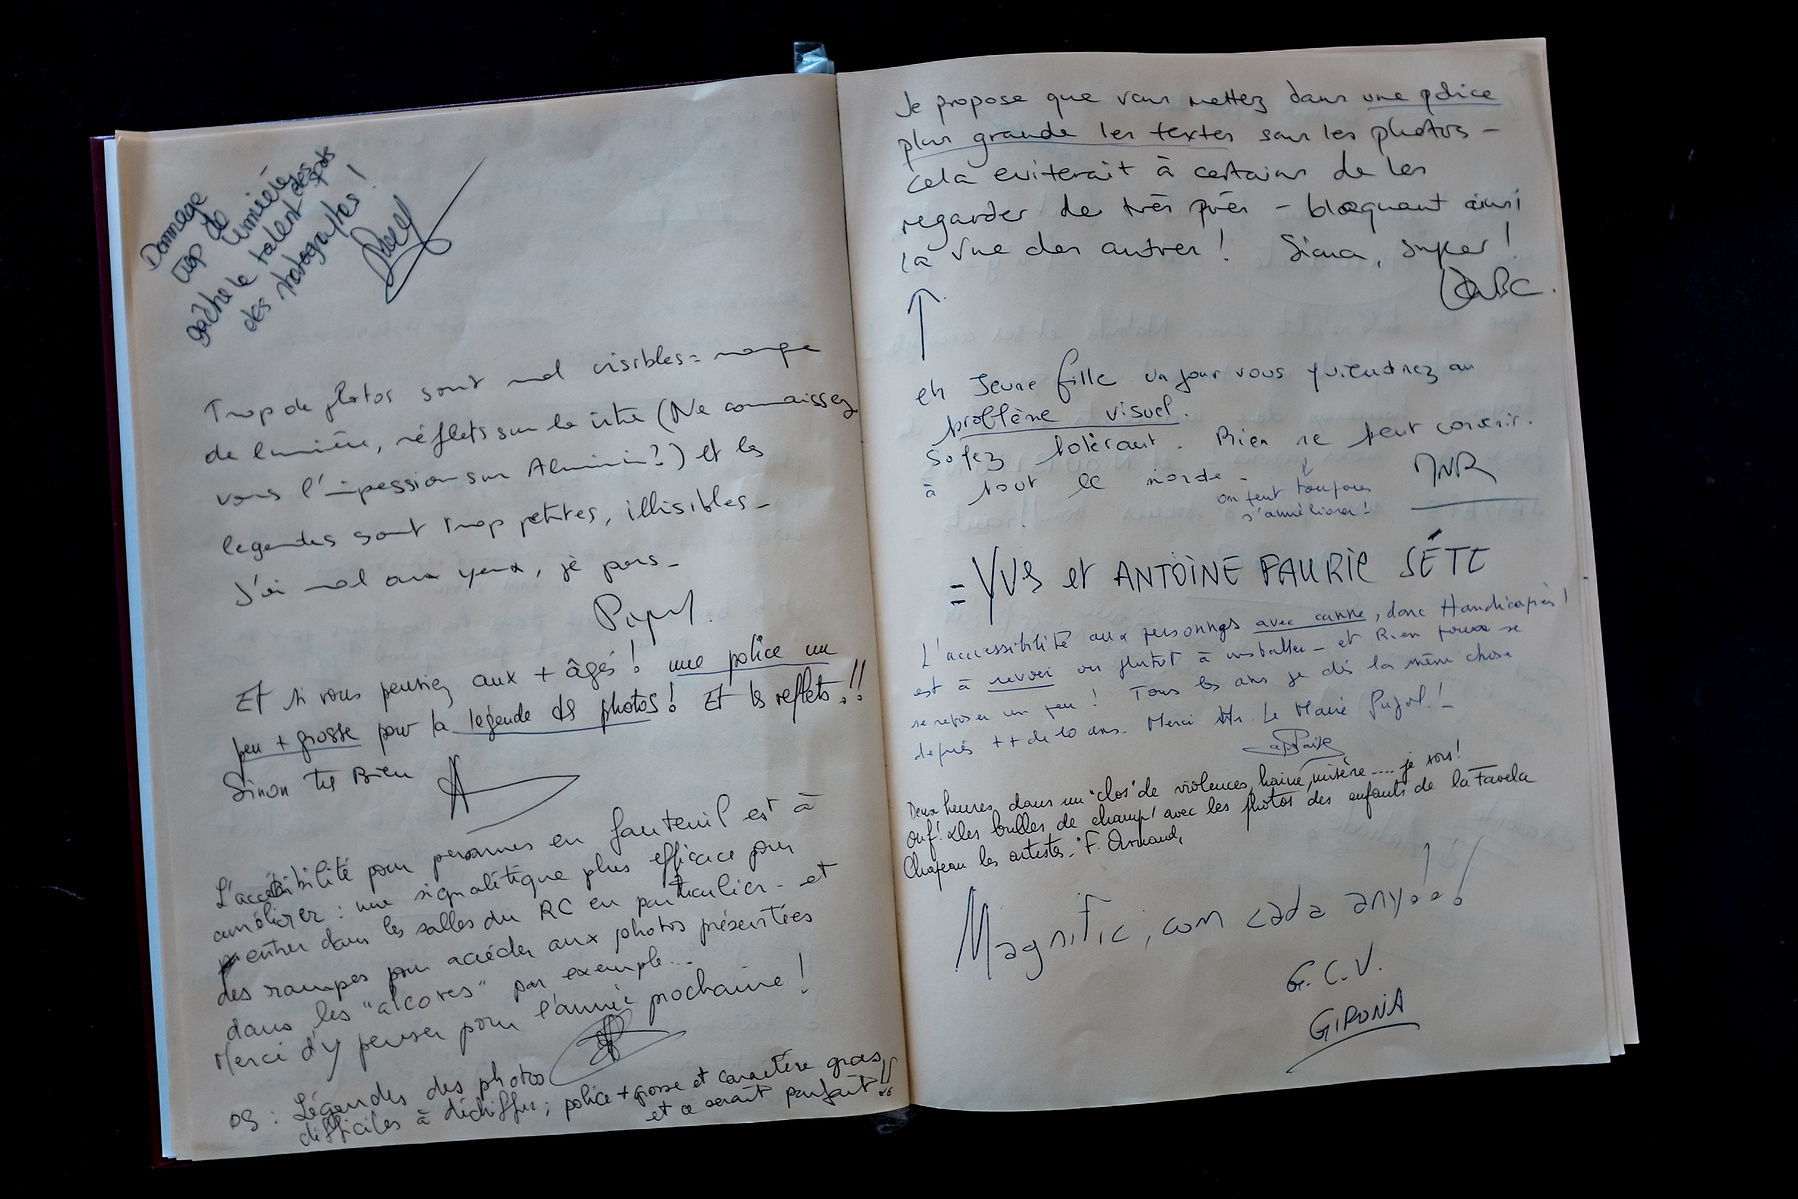 Dommage
trop de
lumière, des spots
gâche le talent
des photographes !
Trop de photos sont mal visibles = manque
de lumière, réflets sur la vitre (Ne connaissez
vous l'impession sur Aluminium ?) et les
legendes sont trop petites, illisibles_
J'ai mal aux yeux, je pars_
Et si vous pensiez aux + âgés ! une police un
peu + grosse pour la légende des photos ! Et les reflets !!
Sinon très Bien
L'accessibilité pour personnes en fauteuil est à
améliorer : une signalétique plus efficace pour
entrer dans les salles du RC en particulier - et
des rampes pour accéder aux photos présentées
dans les "alcoves" par exemple...
Merci d'y penser pour l'année prochaine !
PS : Légendes des photos
difficiles à déchiffrer ; police + grosse et caractère gras
et ce serait parfait !!
Je propose que vous mettez dans une police
plus grande les textes sous les photos -
cela eviterait à certains de les
regarder de très près - bloquant ainsi
la vue des autres ! Sinon, super !
↑
eh Jeune fille un jour vous
problème visuel.
Soyez tolérant. Rien ne peut convenir.
à tout le monde -
on peut toujours
s'améliorer !
= YVES et ANTOINE FAURIE SÉTE
L'accessibilité aux personnes avec canne, donc Handicapés !
est à revoir ou plutot à installer - et Rien pour se
se reposer un peu ! Tous les ans je dis la même chose
depuis ++ de 10 ans. Merci Mr. Le Maire Pujol ! -
Deux heures dans un "clos" de violences, haine, misère.... je sors !
Ouf ! Des bulles de champ' avec les photos des enfants de la Favela
Chapeau les artistes. F. Arnaud,
Magnific, com cada any !!!
G. C. V.
GIRONA